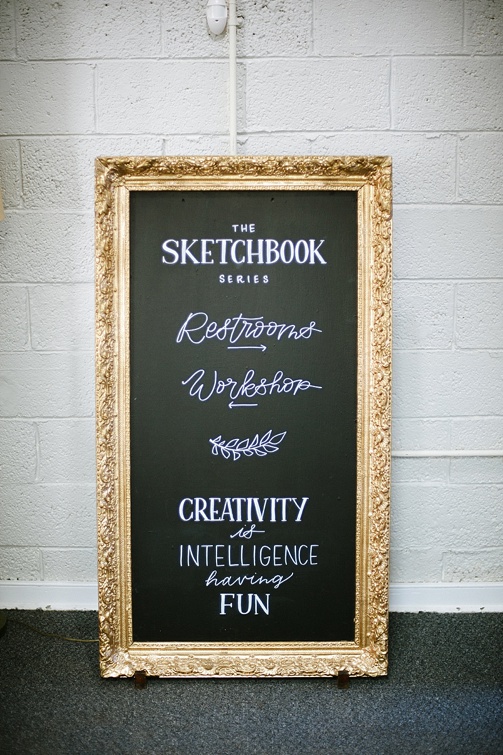 THE
SKETCHBOOK
SERIES
Restrooms
→
Workshop
←
CREATIVITY
is
INTELLIGENCE
having
FUN